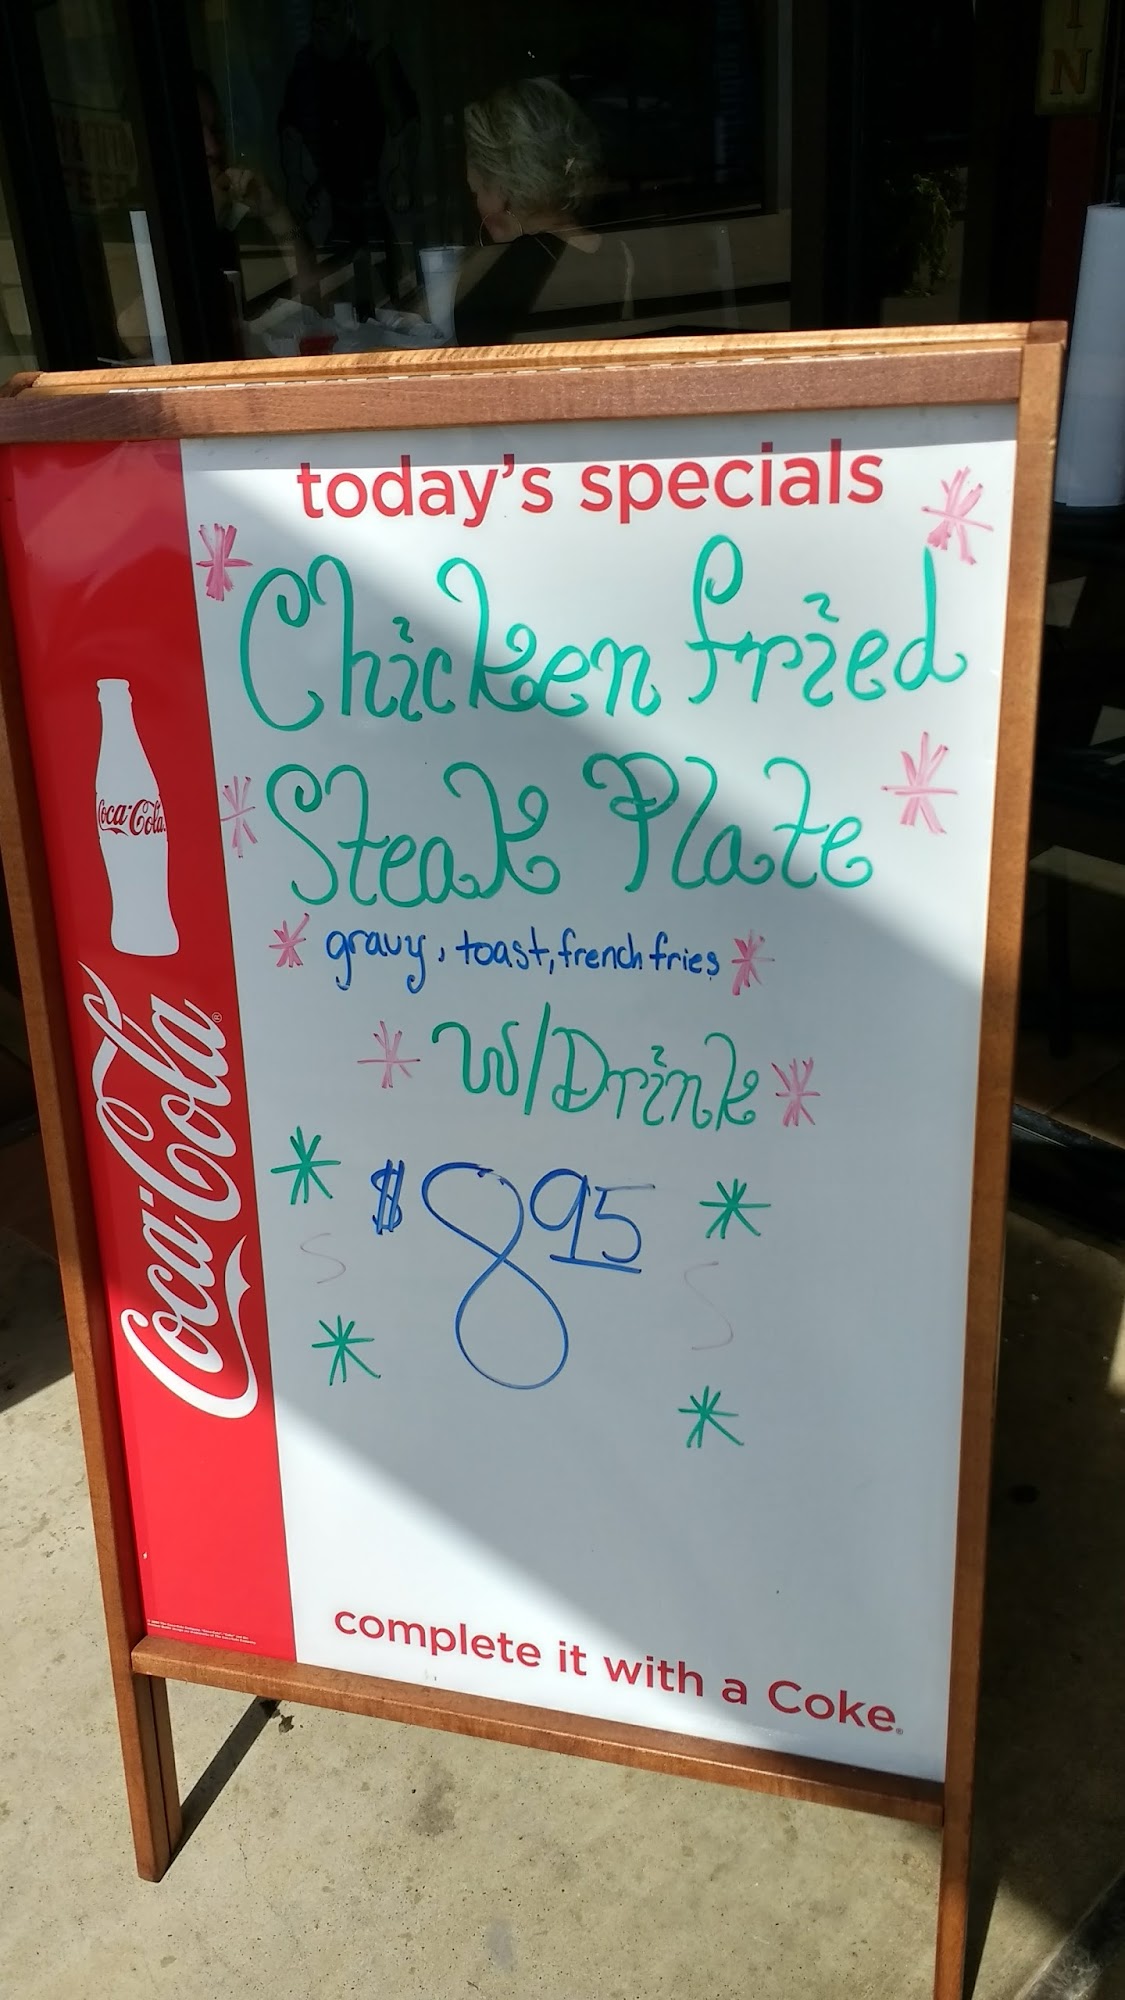 today's specials
Chicken fried
Steak Plate
gravy, toast, french fries
W/Drink
$8 95
S S
Coca-Cola
Coca-Cola®
complete it with a Coke®